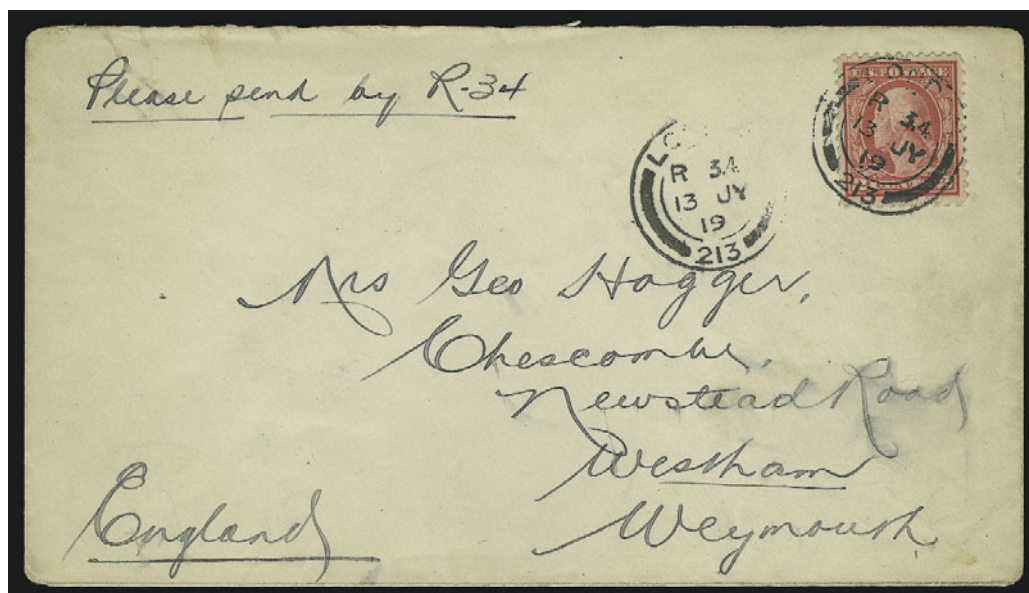 Please send by R-34
R 34
13 JY
19
213
R 34
13 JY
19
213
Mrs Geo Hogger,
Chescombe,
Newstead Road
Westham
Weymouth
England